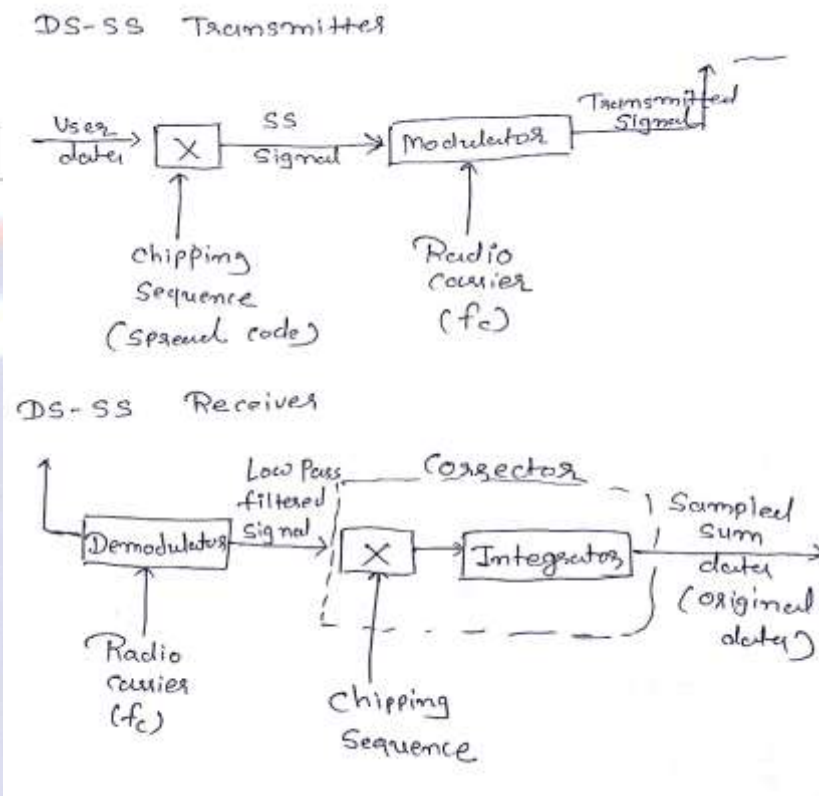 DS-SS Transmitter
User data
X
SS Signal
Modulator
Transmitted Signal
Chipping
Sequence
(spread code)
Radio
carrier
(fc)
DS-SS Receiver
Low Pass
filtered
Signal
Corrector
Demodulator
X
Integrator
Sampled
sum
data
(original
data)
Radio
carrier
(fc)
Chipping
Sequence